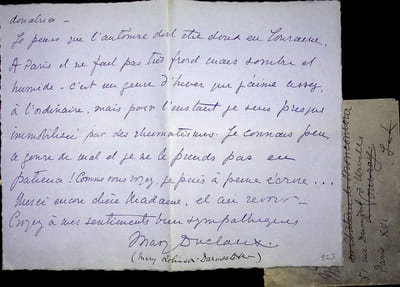 donatrice –
Je pense que l'automne doit être doux en Touraine.
A Paris il ne fait pas très froid mais sombre et
humide – c'est un genre d'hiver que j'aime assez
à l'ordinaire, mais pour l'instant je suis presque
immobilisée par des rhumatismes. Je connais peu
ce genre de mal et je ne le prends pas en
patience! Comme vous voyez, je puis à peine écrire...
Merci encore chère Madame, et au revoir –
Croyez à mes sentiments bien sympathiques
Mary Duclaux.
(Mary Robinson-Darmesteter)
423
Paris XVI